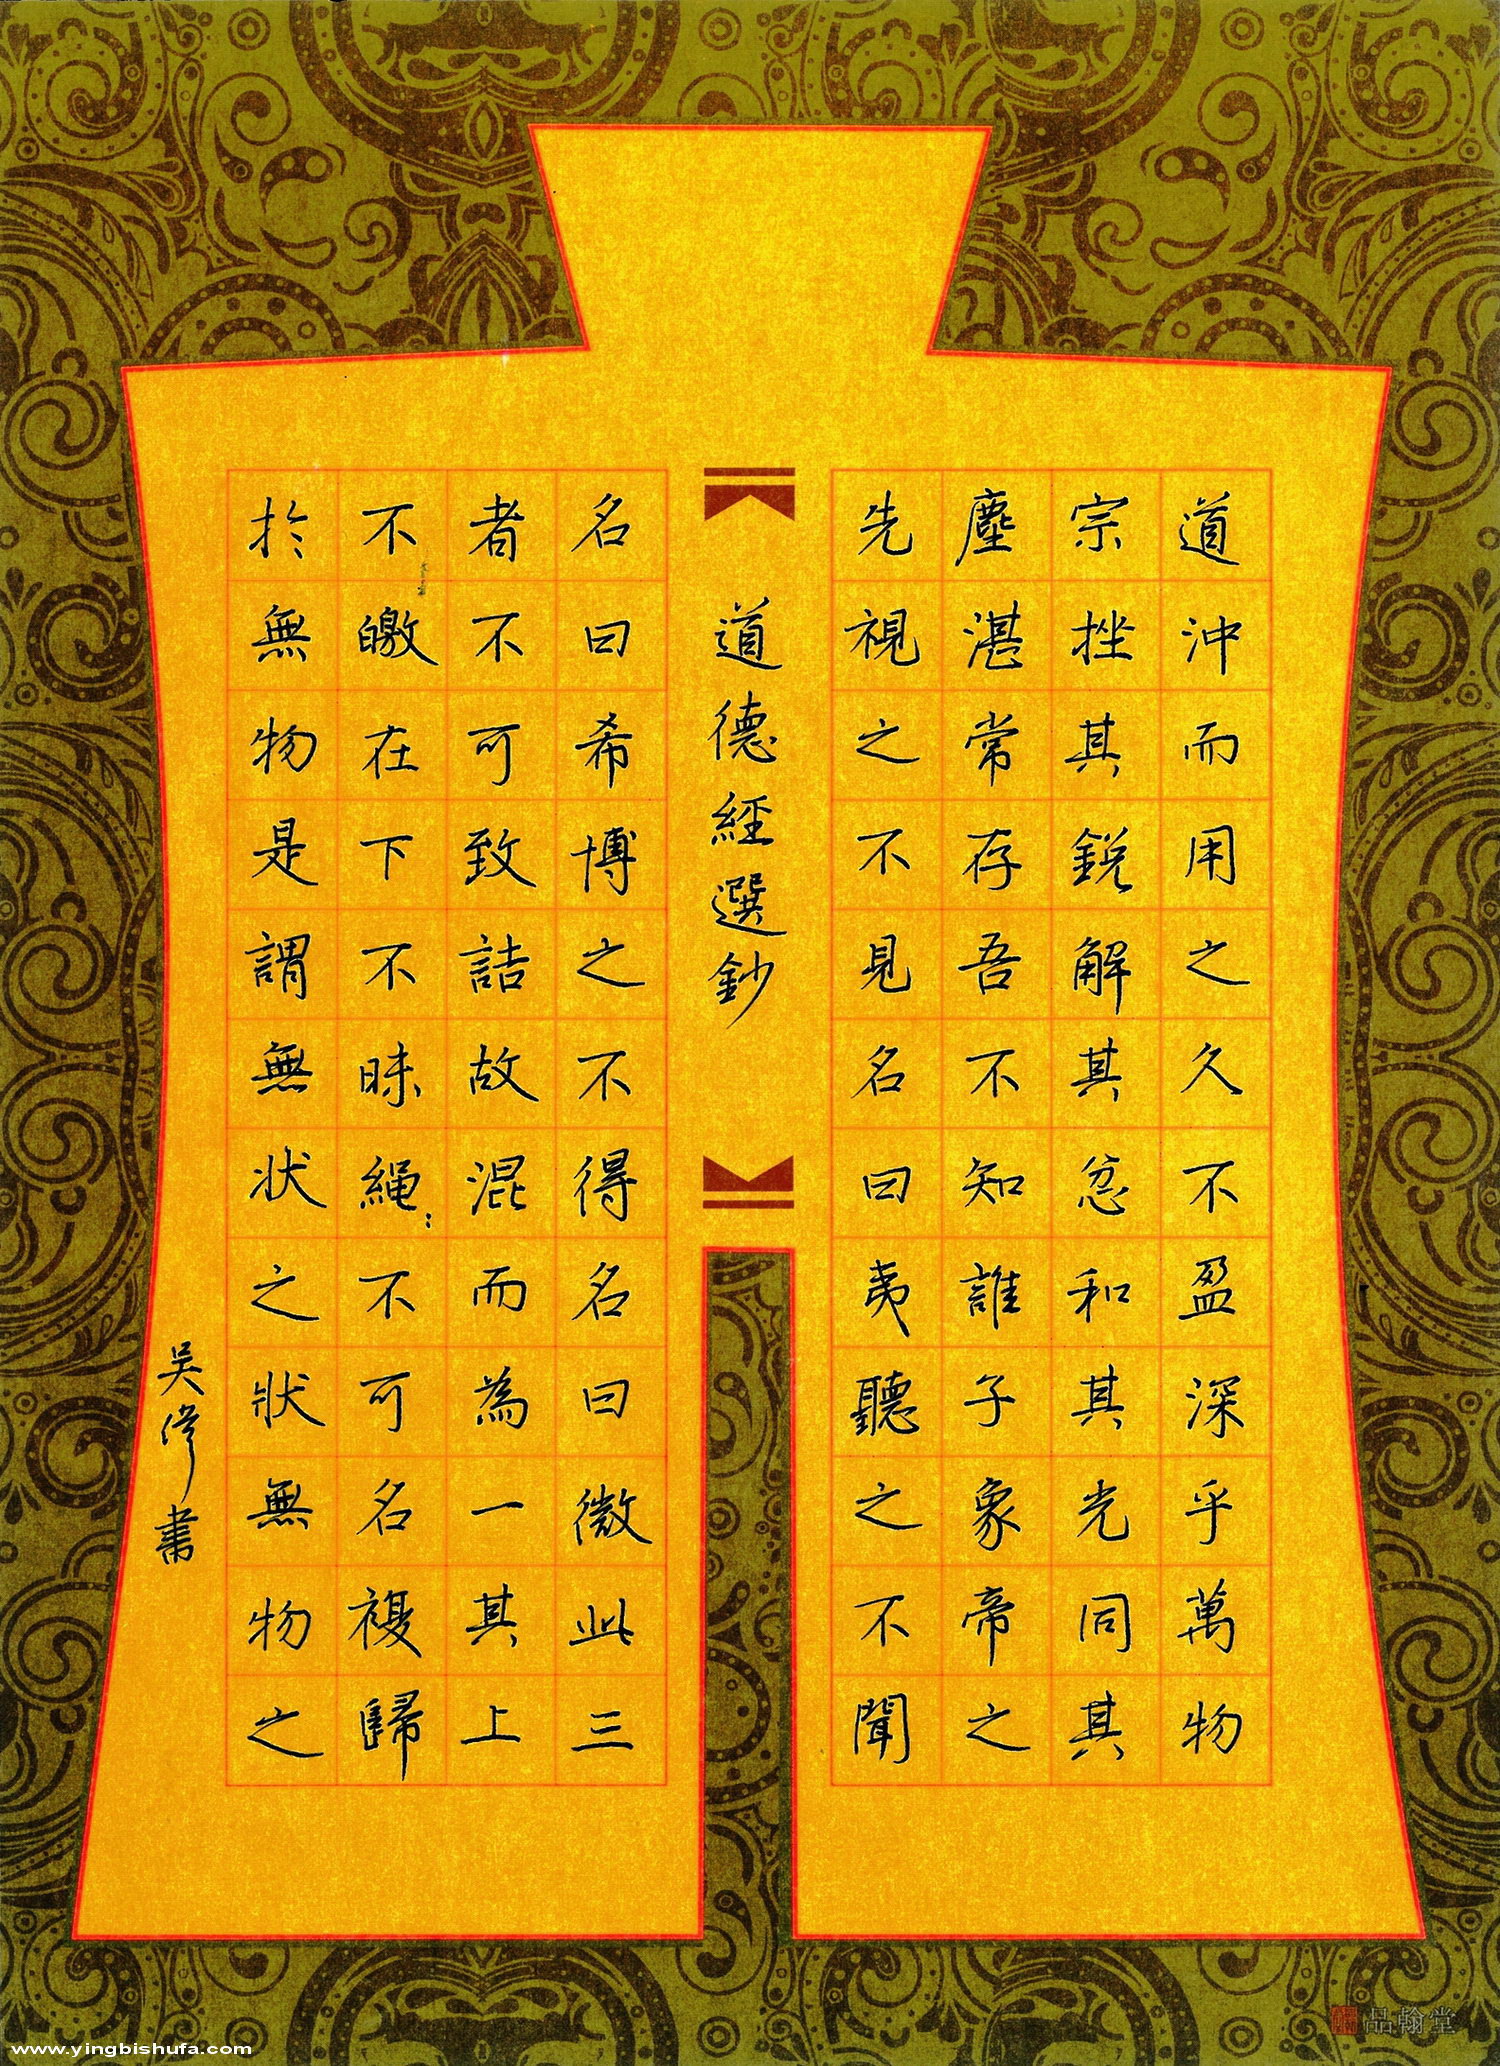 道沖而用之久不盈深乎萬物
宗挫其銳解其忿和其光同其
塵湛常存吾不知誰子象帝之
先視之不見名曰夷聽之不聞
道德經選鈔
名曰希博之不得名曰微此三
者不可致詰故混而為一其上
不皦在下不昧繩:不可名複歸
於無物是謂無状之狀無物之
吴偉書
品翰堂
www.yingbishufa.com